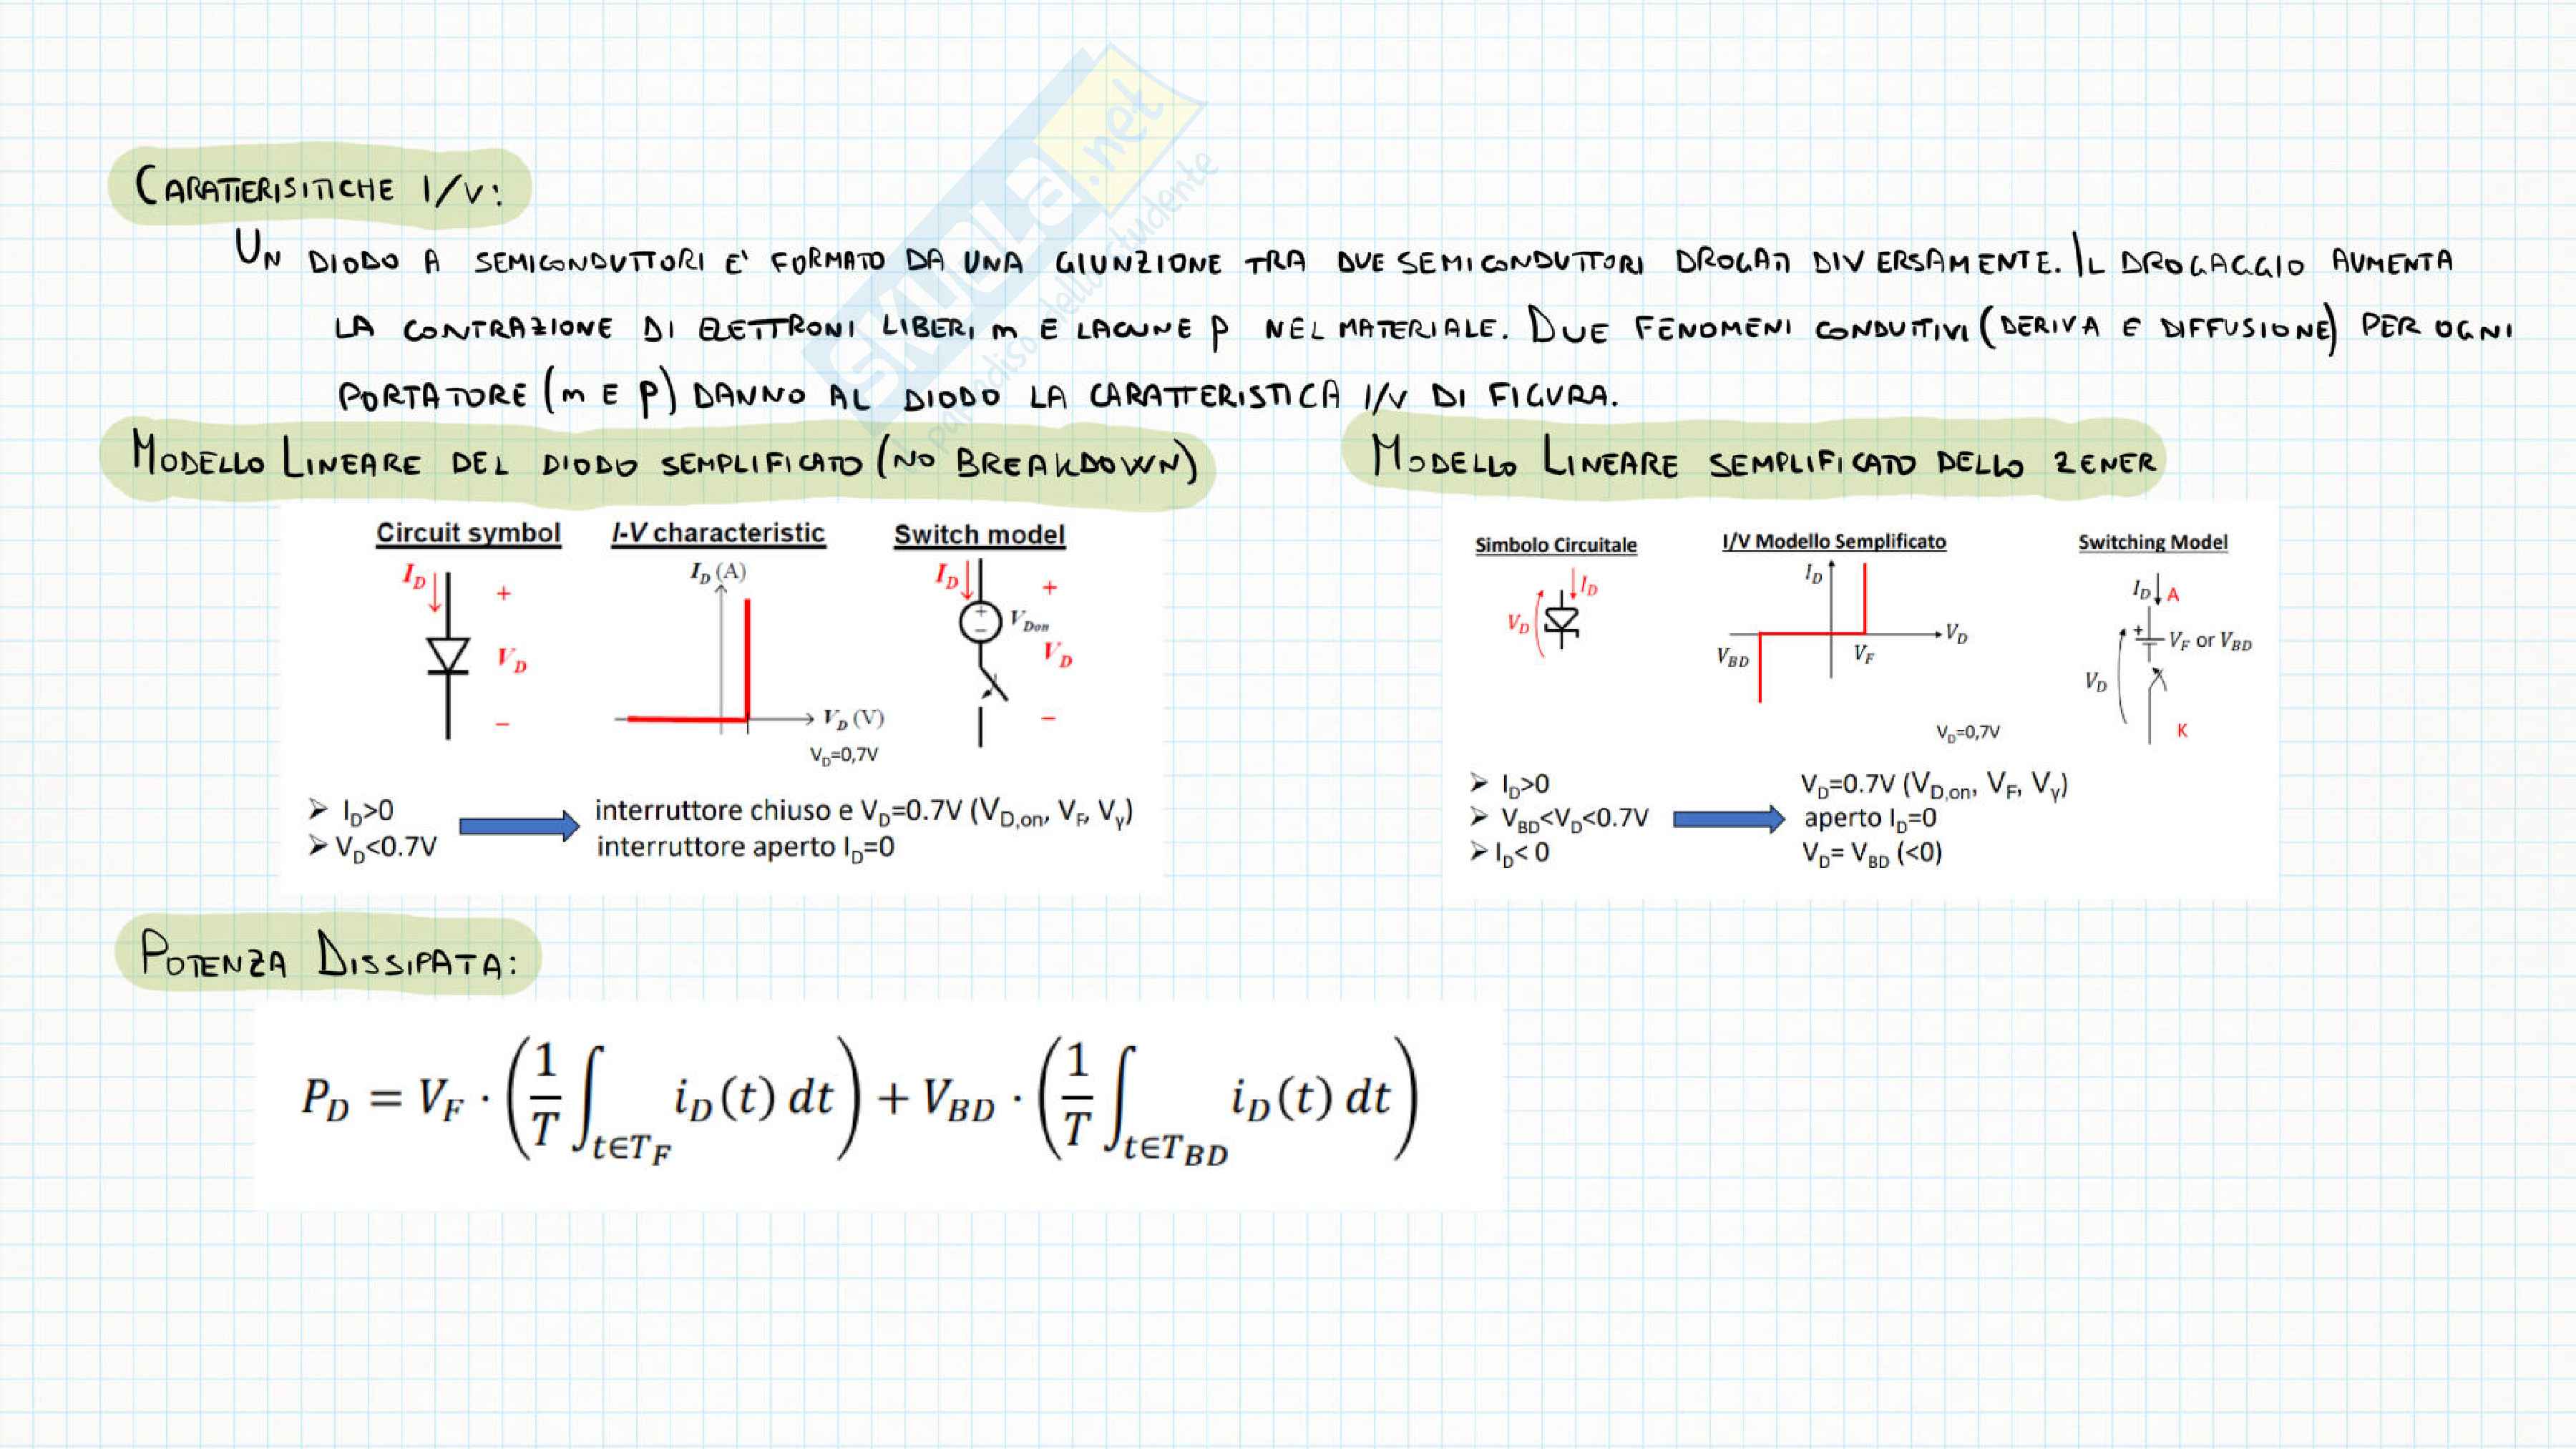 CARATTERISITICHE I/V:
UN DIODO A SEMICONDUTTORI E' FORMATO DA UNA GIUNZIONE TRA DUE SEMICONDUTTORI DROGATI DIVERSAMENTE. IL DROGAGGIO AUMENTA
LA CONTRAZIONE DI ELETTRONI LIBERI m E LACUNE p NEL MATERIALE. DUE FENOMENI CONDUTTIVI (DERIVA E DIFFUSIONE) PER OGNI
PORTATORE (m E p) DANNO AL DIODO LA CARATTERISTICA I/V DI FIGURA.
MODELLO LINEARE DEL DIODO SEMPLIFICATO (NO BREAKDOWN)
Circuit symbol I-V characteristic Switch model
I_D I_D (A) I_D
+ +
V_Don
V_D V_D
V_D (V)
− −
V_D=0,7V
➢ I_D>0 interruttore chiuso e V_D=0.7V (V_D,on, V_F, V_γ)
➢ V_D<0.7V interruttore aperto I_D=0
MODELLO LINEARE SEMPLIFICATO DELLO ZENER
Simbolo Circuitale I/V Modello Semplificato Switching Model
I_D I_D I_D A
V_D V_D + V_F or V_BD
V_BD V_F V_D
V_D=0,7V K
➢ I_D>0 V_D=0.7V (V_D,on, V_F, V_γ)
➢ V_BD<V_D<0.7V aperto I_D=0
➢ I_D< 0 V_D= V_BD (<0)
POTENZA DISSIPATA:
P_D = V_F · (1/T ∫_{t∈T_F} i_D(t) dt) + V_BD · (1/T ∫_{t∈T_BD} i_D(t) dt)
SKUOLA.net
il paradiso dello studente